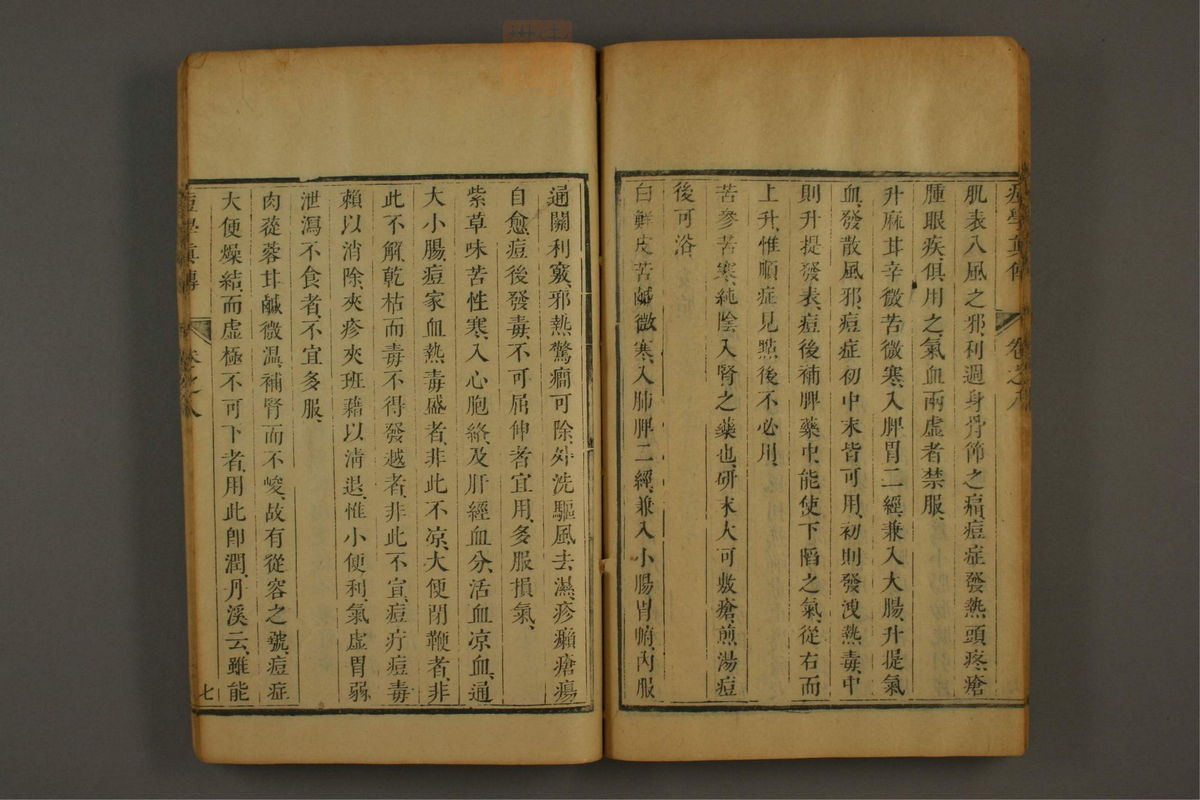 痘學真傳 卷之八
肌表入風之邪利週身骨節之痛痘症發熱頭疼瘡
腫眼疾俱用之氣血兩虛者禁服
升麻甘辛微苦微寒入脾胃二經兼入大腸升提氣
血發散風邪痘症初中末皆可用初則發洩熱毒中
則升提發表痘後補脾藥中能使下䧟之氣從右而
上升惟順症見㸃後不必用
苦參苦寒純陰入腎之藥也研末大可敷瘡煎湯痘
後可浴
白鮮皮苦鹹微寒入肺脾二經兼入小腸胃腑內服
通關利竅邪熱驚癎可除外洗驅風去濕疹癩瘡瘍
自愈痘後發毒不可屈伸者宜用多服損氣
紫草味苦性寒入心胞絡及肝經血分活血凉血通
大小腸痘家血熱毒盛者非此不凉大便閉鞕者非
此不解乾枯而毒不得發越者非此不宣痘疔痘毒
賴以消除夾疹夾班藉以清退惟小便利氣虛胃弱
泄瀉不食者不宜多服
肉蓯蓉甘鹹微溫補腎而不峻故有從容之號痘症
大便燥結而虛極不可下者用此卽潤丹溪云雖能
痘學真傳 卷之八 七